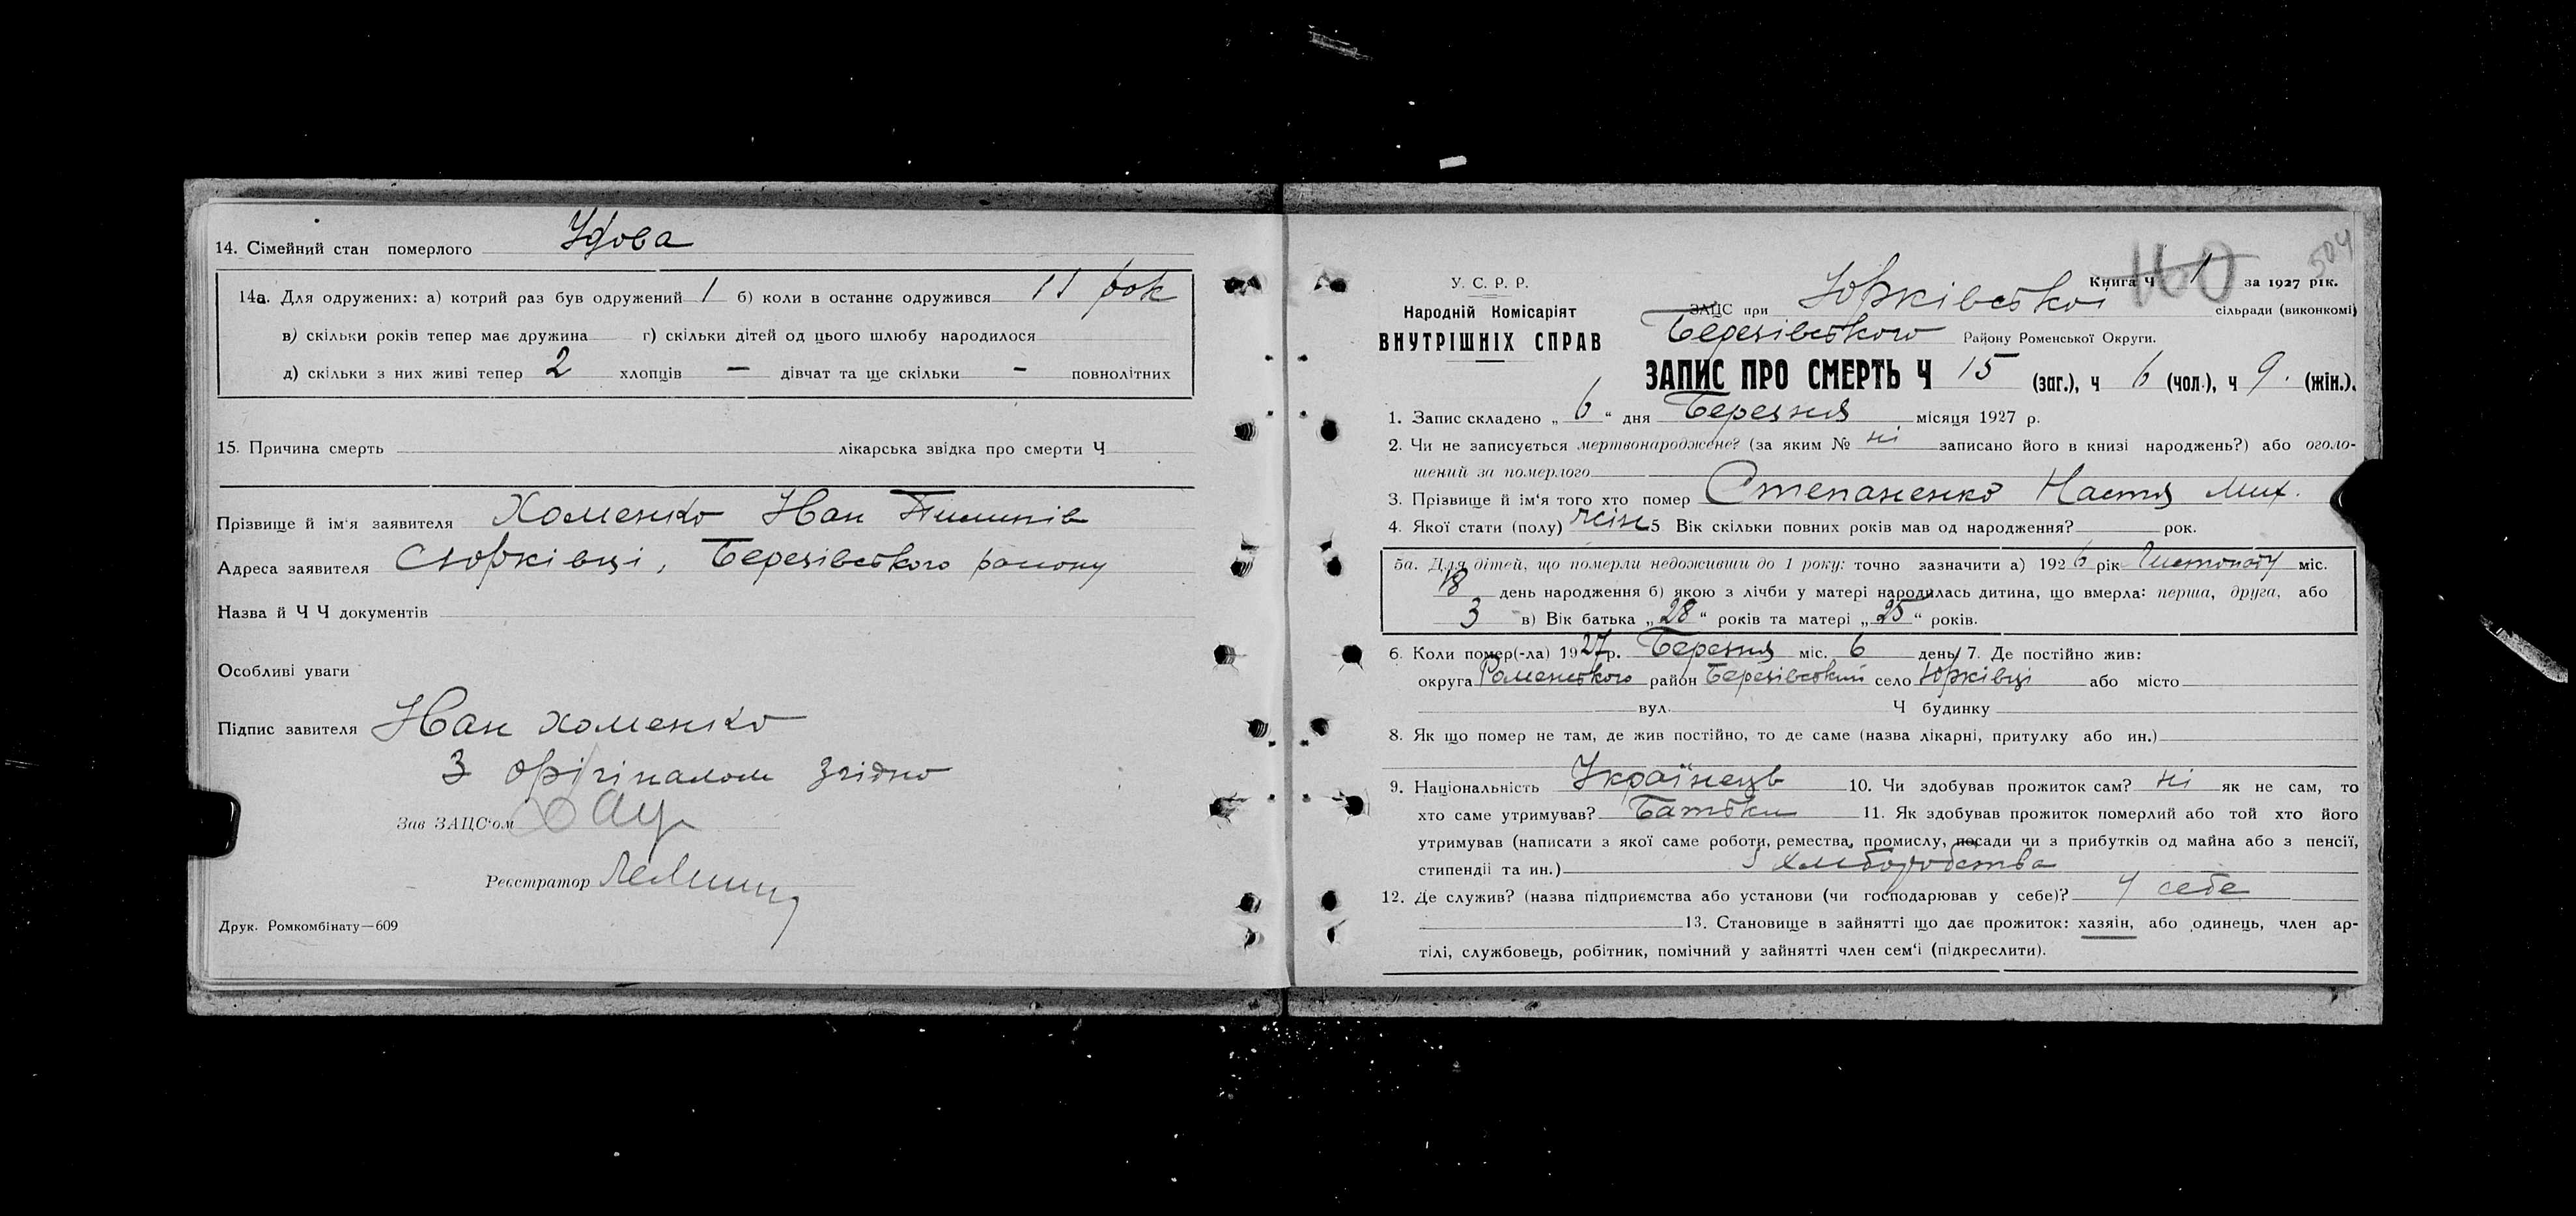 14. Сімейний стан померлого Удова
14а. Для одружених: а) котрий раз був одружений 1 б) коли в останнє одружився 11 рок
в) скільки років тепер має дружина г) скільки дітей од цього шлюбу народилося
д) скільки з них живі тепер 2 хлопців — дівчат та ще скільки - повнолітних
15. Причина смерть лікарська звідка про смерти Ч
Прізвище й ім'я заявителя Хоменко Иван
Адреса заявителя с Юрківці, Березівського району
Назва й Ч Ч документів
Особливі уваги
Підпис завителя Иван Хоменко
З орігіналом згідно
Зав ЗАЦС'ом
Реєстратор
Друк. Ромкомбінату—609
504
160
У. С. Р. Р.
Книга Ч 1 за 1927 рік.
Народній Комісаріят
ВНУТРІШНІХ СПРАВ
ЗАЦС при Юрківської сільради (виконкомі)
Березівського Району Роменської Округи.
ЗАПИС ПРО СМЕРТЬ Ч 15 (заг.), ч 6 (чол.), ч 9. (жін.).
1. Запис складено „ 6 " дня Березня місяця 1927 р.
2. Чи не записується мертвонароджене? (за яким № ні записано його в книзі народжень?) або оголо-
шений за померлого
3. Прізвище й ім'я того хто помер Степаненко Настя Мих.
4. Якої стати (полу) жін 5 Вік скільки повних років мав од народження? рок.
5а. Для дітей, що померли недоживши до 1 року: точно зазначити а) 192 6 рік Листопаду міс.
18 день народження б) якою з лічби у матері народилась дитина, що вмерла: перша, друга, або
3 в) Вік батька „ 28 " років та матері „ 25 " років.
6. Коли помер(-ла) 19 27 р. Березня міс. 6 день 7. Де постійно жив:
округа Роменського район Березівський село Юрківці або місто
вул. Ч будинку
8. Як що помер не там, де жив постійно, то де саме (назва лікарні, притулку або ин.)
9. Національність Українець 10. Чи здобував прожиток сам? ні як не сам, то
хто саме утримував? Батьки 11. Як здобував прожиток померлий або той хто його
утримував (написати з якої саме роботи, ремества, промислу, посади чи з прибутків од майна або з пенсії,
стипендії та ин.) З хліборобства
12. Де служив? (назва підприємства або установи (чи господарював у себе)? у себе
13. Становище в зайнятті що дає прожиток: хазяїн, або одинець, член ар-
тілі, службовець, робітник, помічний у зайнятті член сем'ї (підкреслити).